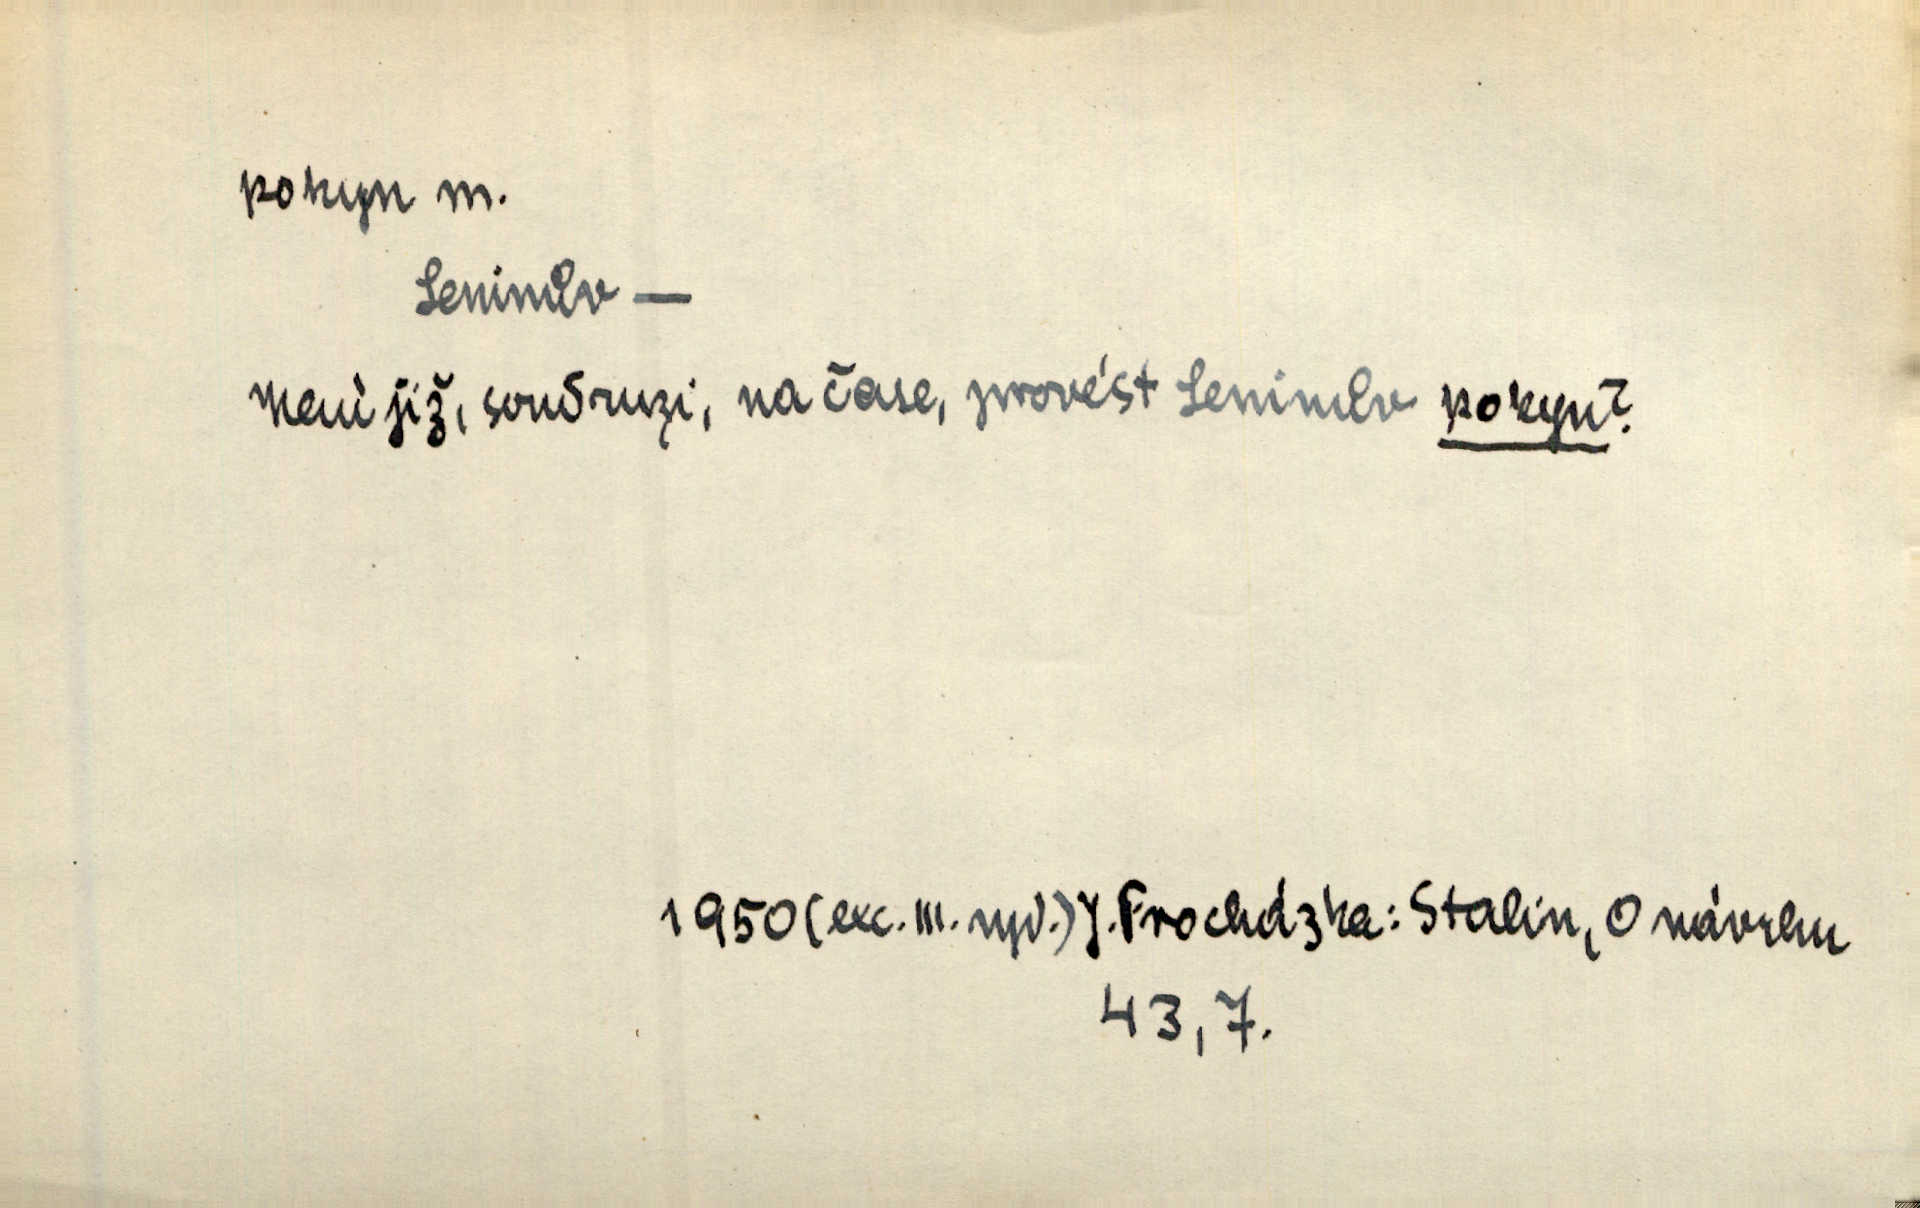 pokyn m.
Leninův —
Není již, soudruzi, na čase, provést Leninův pokyn?
1950 (exc. III. vyd.) J. Procházka: Stalin, O návrhu
43, 7.